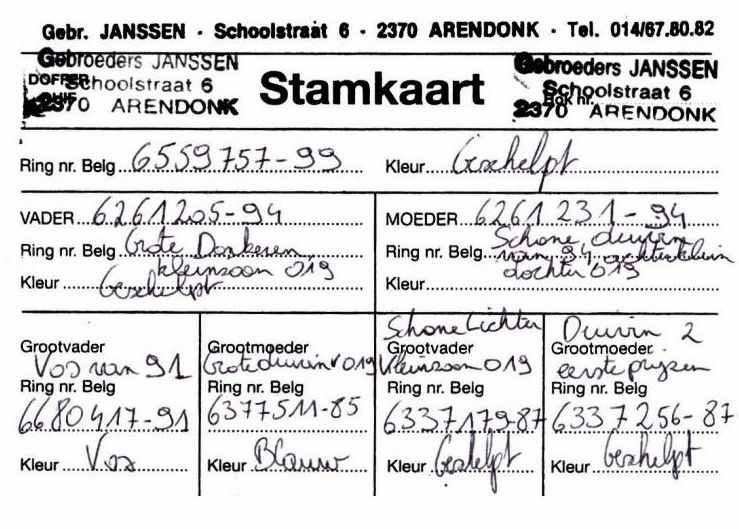 Gebr. JANSSEN · Schoolstraat 6 · 2370 ARENDONK · Tel. 014/67.80.82
Gebroeders JANSSEN
DOFFER Schoolstraat 6
2370 ARENDONK
Stamkaart
Gebroeders JANSSEN
Schoolstraat 6
Hok nr.
2370 ARENDONK
Ring nr. Belg 6559757-99 Kleur Geschelpt
VADER 6261205-94
Ring nr. Belg Grote Donkeren
kleinzoon 019
Kleur Geschelpt
MOEDER 6261231-94
Schone duivin
Ring nr. Belg van 94 achterklein
dochter 019
Kleur
Grootvader
Vos van 91
Ring nr. Belg
6680417-91
Kleur Vos
Grootmoeder
Grote duivin v 019
Ring nr. Belg
6377511-85
Kleur Blauw
Schone Lichter
Grootvader
Kleinzoon 019
Ring nr. Belg
6337179-87
Kleur Geshelpt
Duivin 2
Grootmoeder
eerste prijzen
Ring nr. Belg
6337256-87
Kleur Geshelpt